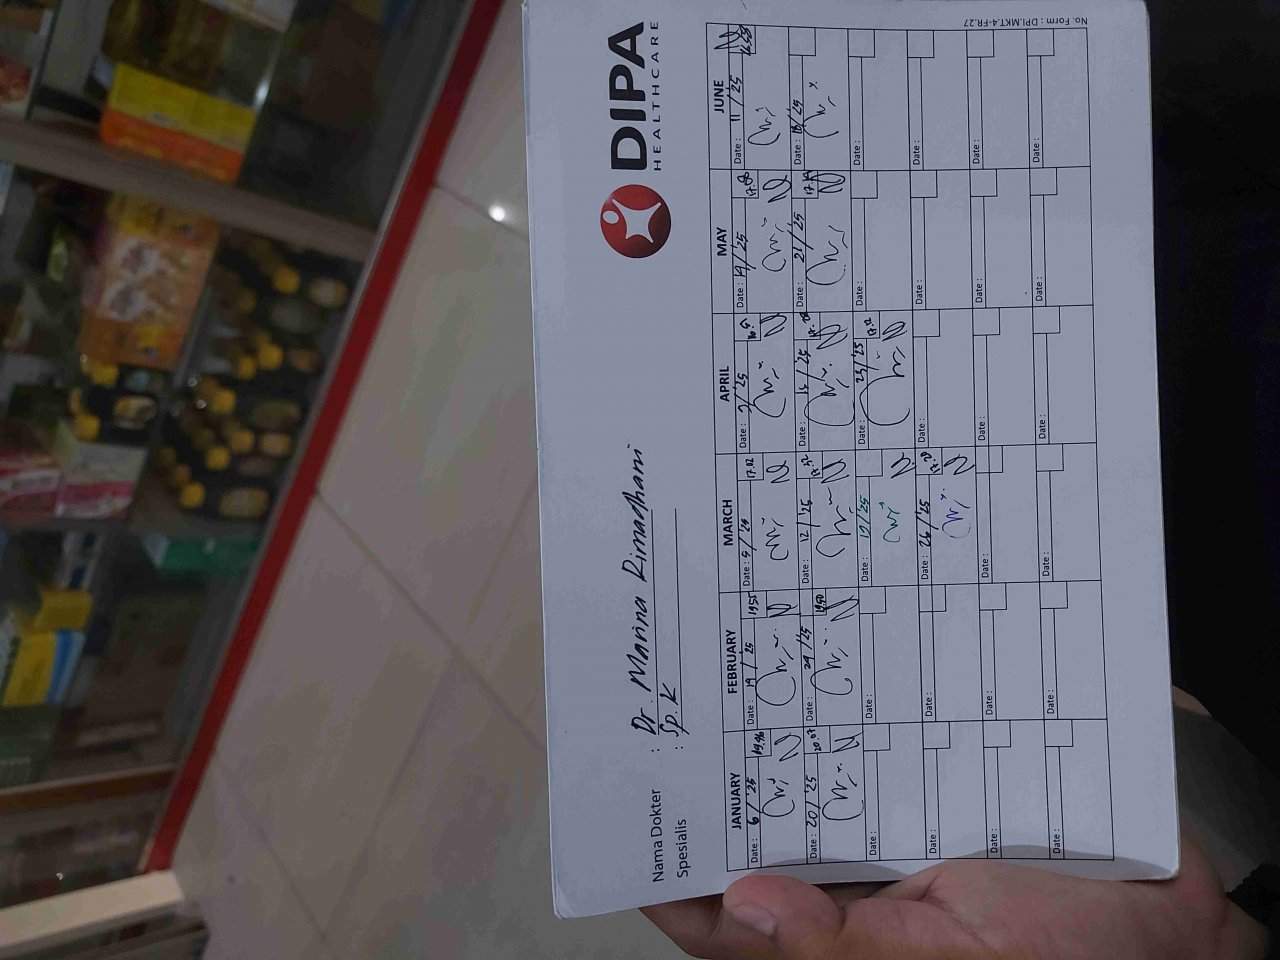 DIPA
HEALTHCARE
Nama Dokter : Dr. Marina Rimadhani
Spesialis : Sp. K
JANUARY FEBRUARY MARCH APRIL MAY JUNE
Date : 6/'25 Date : 19/'25 19.55 Date : 5/'25 17.02 Date : Date : 14/'25 17.00 Date : 11/'25
Date : 20/'25 20.07 Date : Date : 12/'25 Date : 15/'25 Date : 21/'25 Date : 18/'25
Date : Date : Date : 19/'25 Date : 23/'25 17.12 Date : Date :
Date : Date : Date : 26/'25 Date : Date : Date :
Date : Date : Date : Date : Date : Date :
Date : Date : Date : Date : Date : Date :
No. Form : DPI.MKT.4-FR.27